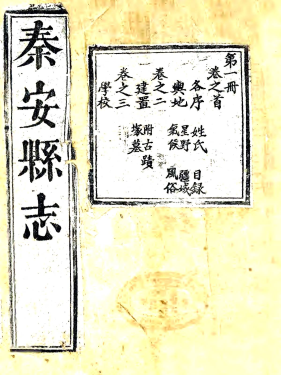 秦安縣志
第一冊
卷之首
各序 姓氏 目録
輿地 星野 疆域
氣候 風俗
卷之二
建置 附古蹟
塚墓
卷之三
學校